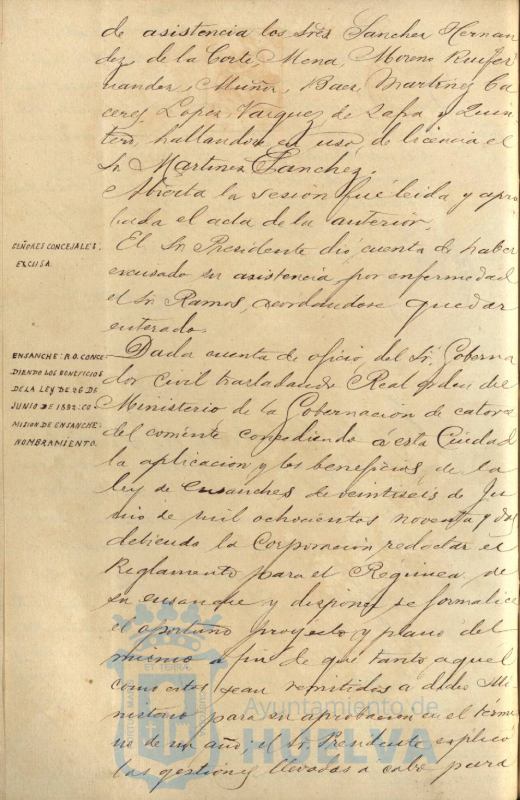 de asistencia los Sres Sanchez Hernan
dez, de la Corte, Mena, Moreno Ruifer
nandez, Muñoz, Baez, Martinez Ca
ceres, Lopez, Vazquez de Zafra y Quin
tero, hallandose en uso de licencia el
Sr Martinez Sanchez.
Abierta la sesión fué leida y apro
bada el acta de la anterior.
SEÑORES CONCEJALES:
EXCUSA.
El Sr Presidente dió cuenta de haber
excusado su asistencia por enfermedad
el Sr Ramos, acordandose quedar
enterado.
ENSANCHE: R.O. CONCE
DIENDO LOS BENEFICIOS
DE LA LEY DE 26 DE
JUNIO DE 1892: CO-
MISION DE ENSANCHE:
NOMBRAMIENTO.
Dada cuenta de oficio del Sr. Goberna
dor civil trasladando Real orden del
Ministerio de la Gobernacion de catorce
del corriente concediendo á esta Ciudad
la aplicacion y los beneficios de la
ley de ensanches de veintiseis de Ju
nio de mil ochocientos noventa y dos
debiendo la Corporación redactar el
Reglamento para el Regimen de
su ensanche y dispone se formalice
el oportuno proyecto y plano del
mismo a fin de que tanto aquel
como estos sean remitidos a dicho Mi
nisterio para su aprobacion en el térmi
no de un año; el Sr. Presidente explicó
las gestiones llevadas a cabo para
Ayuntamiento de
HUELVA